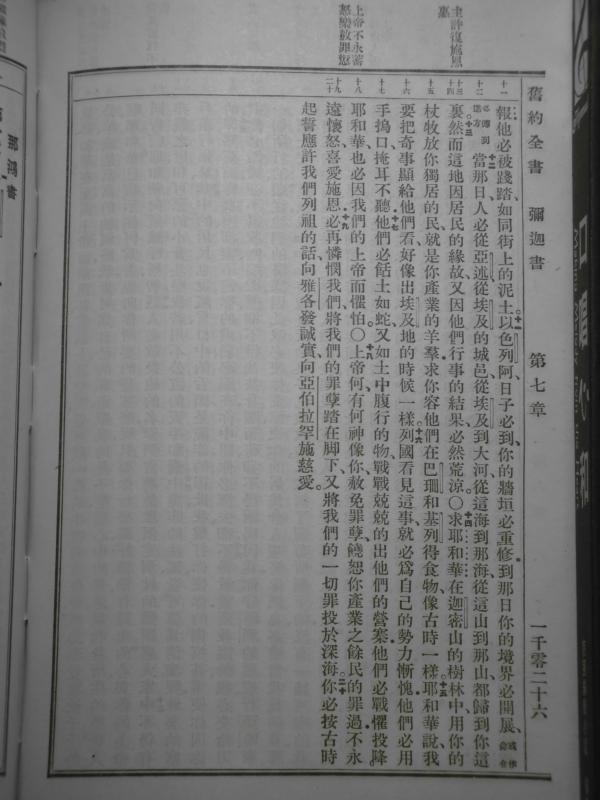 舊約全書 彌迦書 第七章 一千零二十六
主許復施恩
惠
上帝不永蓄
怒樂赦罪愆
十一 十二 十三 十四 十五 十六 十七 十八 十九 二十
報他必被踐踏如同街上的泥土、十一以色列阿日子必到你的牆垣必重修到那日你的境界必開展、或作命令
必傳到遠方 十二當那日人必從亞述從埃及的城邑從埃及到大河從這海到那海從這山到那山都歸到你這
裏。十三然而這地因居民的緣故又因他們行事的結果必然荒涼〇十四求耶和華在迦密山的樹林中用你的
杖牧放你獨居的民就是你產業的羊羣求你容他們在巴珊和基列得食物像古時一樣十五耶和華說我
要把奇事顯給他們看好像出埃及地的時候一樣十六列國看見這事就必爲自己的勢力慚愧他們必用
手摀口掩耳不聽十七他們必餂土如蛇又如土中腹行的物戰戰兢兢的出他們的營寨他們必戰懼投降
耶和華也必因我們的上帝而懼怕〇十八上帝何有何神像你赦免罪孽饒恕你產業之餘民的罪過不永
遠懷怒喜愛施恩十九必再憐憫我們將我們的罪孽踏在脚下又將我們的一切罪投於深海二十你必按古時
起誓應許我們列祖的話向雅各發誠實向亞伯拉罕施慈愛。
那鴻書
口唱心和